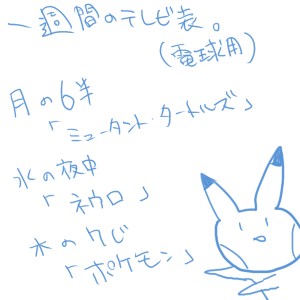 一週間のテレビ表。
(電球用)
月の6半
「ミュータント・タートルズ」
水の夜中
「ネウロ」
木の7じ
「ポケモン」